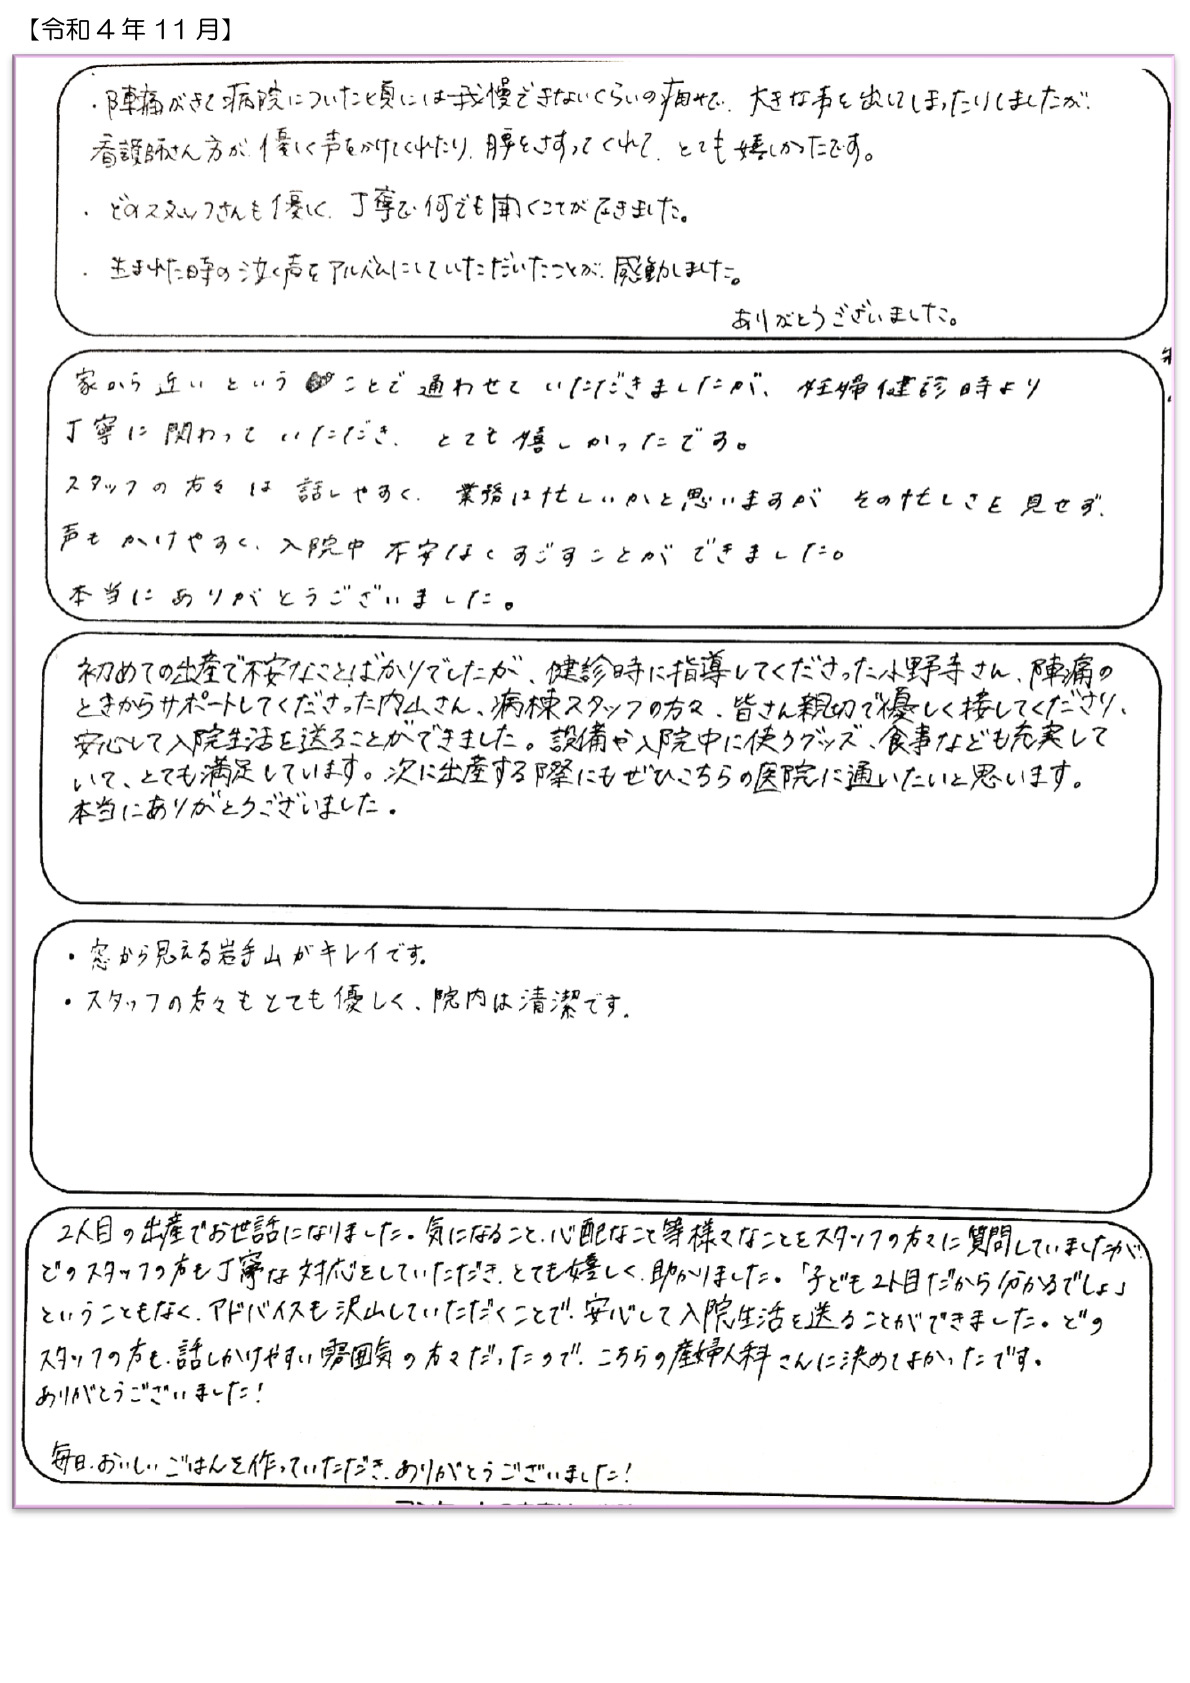 【令和4年11月】
・陣痛がきて病院についた頃には我慢できないくらいの痛みで、大きな声を出してしまったりしましたが、
看護師さん方が優しく声をかけてくれたり、腰をさすってくれて、とても嬉しかったです。
・どのスタッフさんも優しく、丁寧で何でも聞くことができました。
・生まれた時の泣く声をアルバムにしていただいたことが、感動しました。
ありがとうございました。
家から近いという ことで通わせていただきましたが、妊婦健診時より
丁寧に関わっていただき、とても嬉しかったです。
スタッフの方々は話しやすく、業務は忙しいかと思いますがその忙しさを見せず、
声もかけやすく、入院中不安なくすごすことができました。
本当にありがとうございました。
初めての出産で不安なことばかりでしたが、健診時に指導してくださった小野寺さん、陣痛の
ときからサポートしてくださった内山さん、病棟スタッフの方々、皆さん親切で優しく接してくださり、
安心して入院生活を送ることができました。設備や入院中に使うグッズ、食事なども充実して
いて、とても満足しています。次に出産する際にもぜひこちらの医院に通いたいと思います。
本当にありがとうございました。
・窓から見える岩手山がキレイです。
・スタッフの方々もとても優しく、院内は清潔です。
2人目の出産でお世話になりました。気になること、心配なこと等様々なことをスタッフの方々に質問していましたが、
どのスタッフの方も丁寧な対応をしていただき、とても嬉しく、助かりました。「子ども2人目だから分かるでしょ」
ということもなく、アドバイスも沢山していただくことで、安心して入院生活を送ることができました。どの
スタッフの方も、話しかけやすい雰囲気の方々だったので、こちらの産婦人科さんに決めてよかったです。
ありがとうございました!
毎日、おいしいごはんを作っていただき、ありがとうございました!